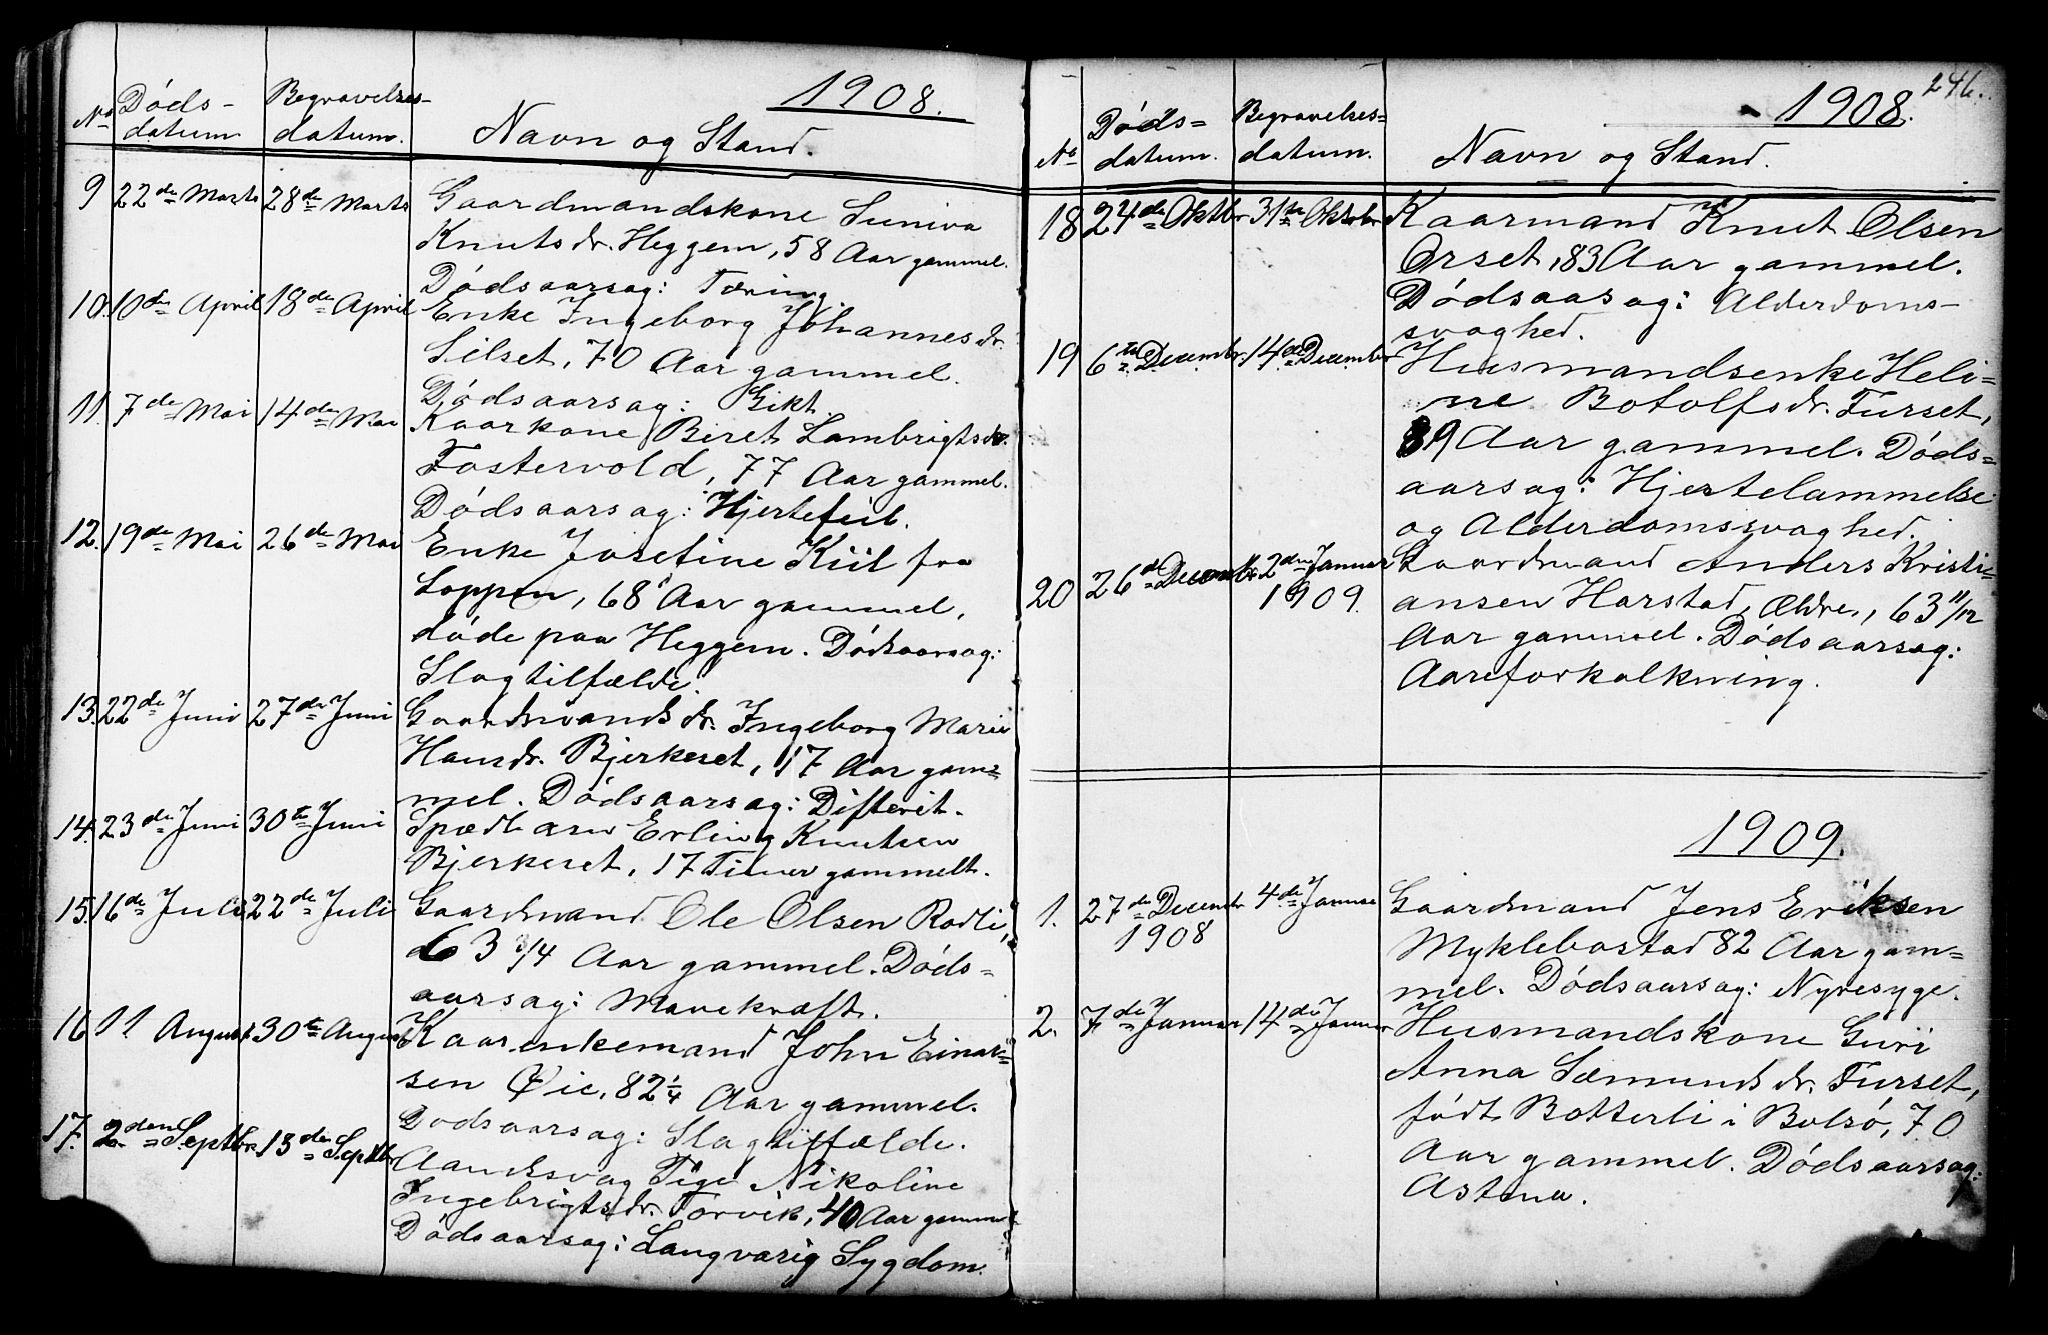 1908.
No Döds- Begravelses-
datum datum. Navn og Stand.
9 22de Marts 28de Marts Gaardmandskone Suniva
Knutsdr. Heggem, 58 Aar gammel.
Dödsaarsag: Tæring.
10. 10de April 18de April Enke Ingeborg Johannesdr.
Silset, 70 Aar gammel.
Dödsaarsag: Gikt.
11. 7de Mai 14de Mai Kaarkone Beret Lambrigtsdr.
Fostervold, 77 Aar gammel.
Dödsaarsag: Hjertefeil.
12. 19de Mai 26de Mai Enke Josefine Kiil fra
Loppen, 68 Aar gammel,
döde paa Heggem. Dödsaarsag:
Slagtilfælde.
13. 22de Juni 27de Juni Gaardmandsdr. Ingeborg Marie
Hansdr. Bjerkeset, 17 Aar gam=
mel. Dödsaarsag: Difterit.
14. 23de Juni 30te Juni Spædbarn Erling Knutsen
Bjerkeset, 17 Timer gammelt.
15. 16de Juli 22de Juli Gaardmand Ole Olsen Rødli,
63 3/4 Aar gammel. Döds=
aarsag: Mavekræft.
16 11 August 30te August Kaarenkemand John Einar=
sen Øie, 82 1/4 Aar gammel.
Dodsaarsag: Slagtilfælde.
17. 2den Septbr. 13de Septbr. Aandssvag Pige Nikoline
Ingebrigtsdr. Torvik, 40 Aar gammel
Dödsaarsag: Langvarig Sygdom.
246.
1908.
No Döds= Begravelses=
datum. datum. Navn og Stand.
18 24de Oktbr 31te Oktobr Kaarmand Knut Olsen
Orset, 83 Aar gammel.
Dödsaarsag: Alderdoms-
svaghed.
19 6te Decembr. 14de Decembr Husmandsenke Heli=
ne Botolfsdr. Furset,
89 Aar gammel. Döds=
aarsag: Hjertelammelse
og Alderdomssvaghed.
20 26de Decembr. 2den Januar Gaardmand Anders Kristi=
1909. ansen Harstad, Ældre, 63 11/12
Aar gammel. Dödsaarsag:
Aareforkalkning.
1909.
1. 27de Decembr 4de Januar Gaardmand Jens Eriksen
1908 Myklebostad 82 Aar gam=
mel. Dödsaarsag: Nyresyge.
2. 7de Januar 14de Januar Husmandskone Guri
Anna Sæmundsdr. Furset,
född Botterli i Bolsö, 70
Aar gammel. Dödsaarsag:
Astma.